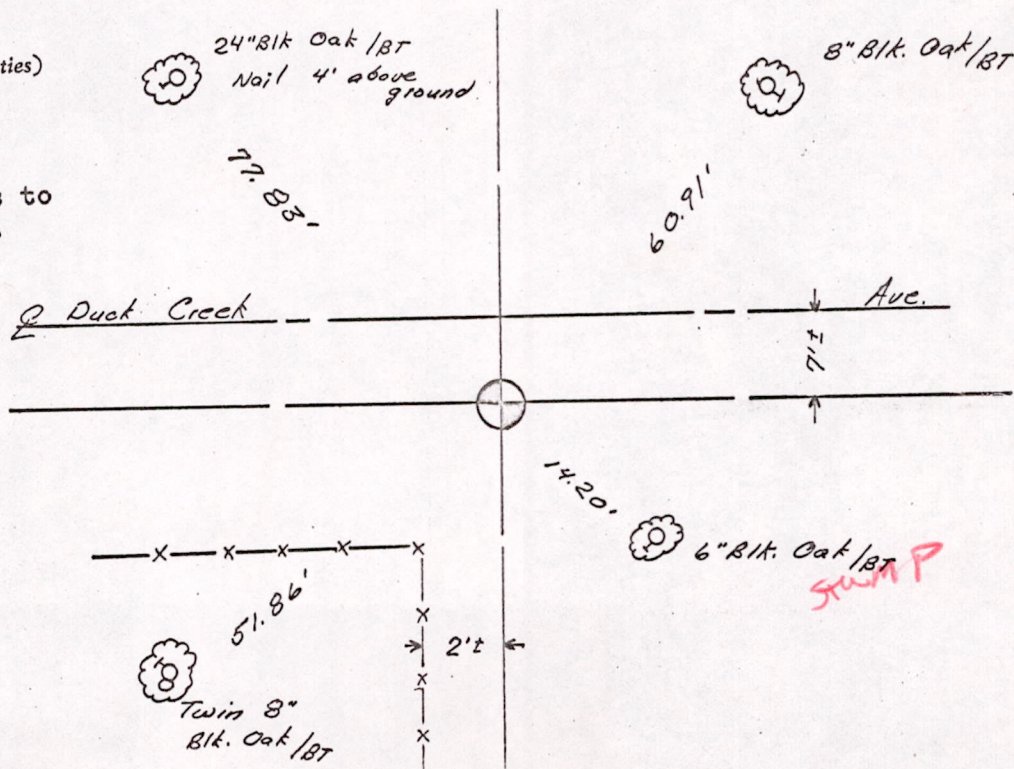 ties)
24" Blk Oak /BT
Nail 4' above
ground
8" Blk. Oak /BT
77.83'
60.91'
to
℄ Duck Creek Ave.
7'±
14.20'
6" Blk. Oak /BT
STUMP
51.86'
2'±
Twin 8"
Blk. Oak /BT